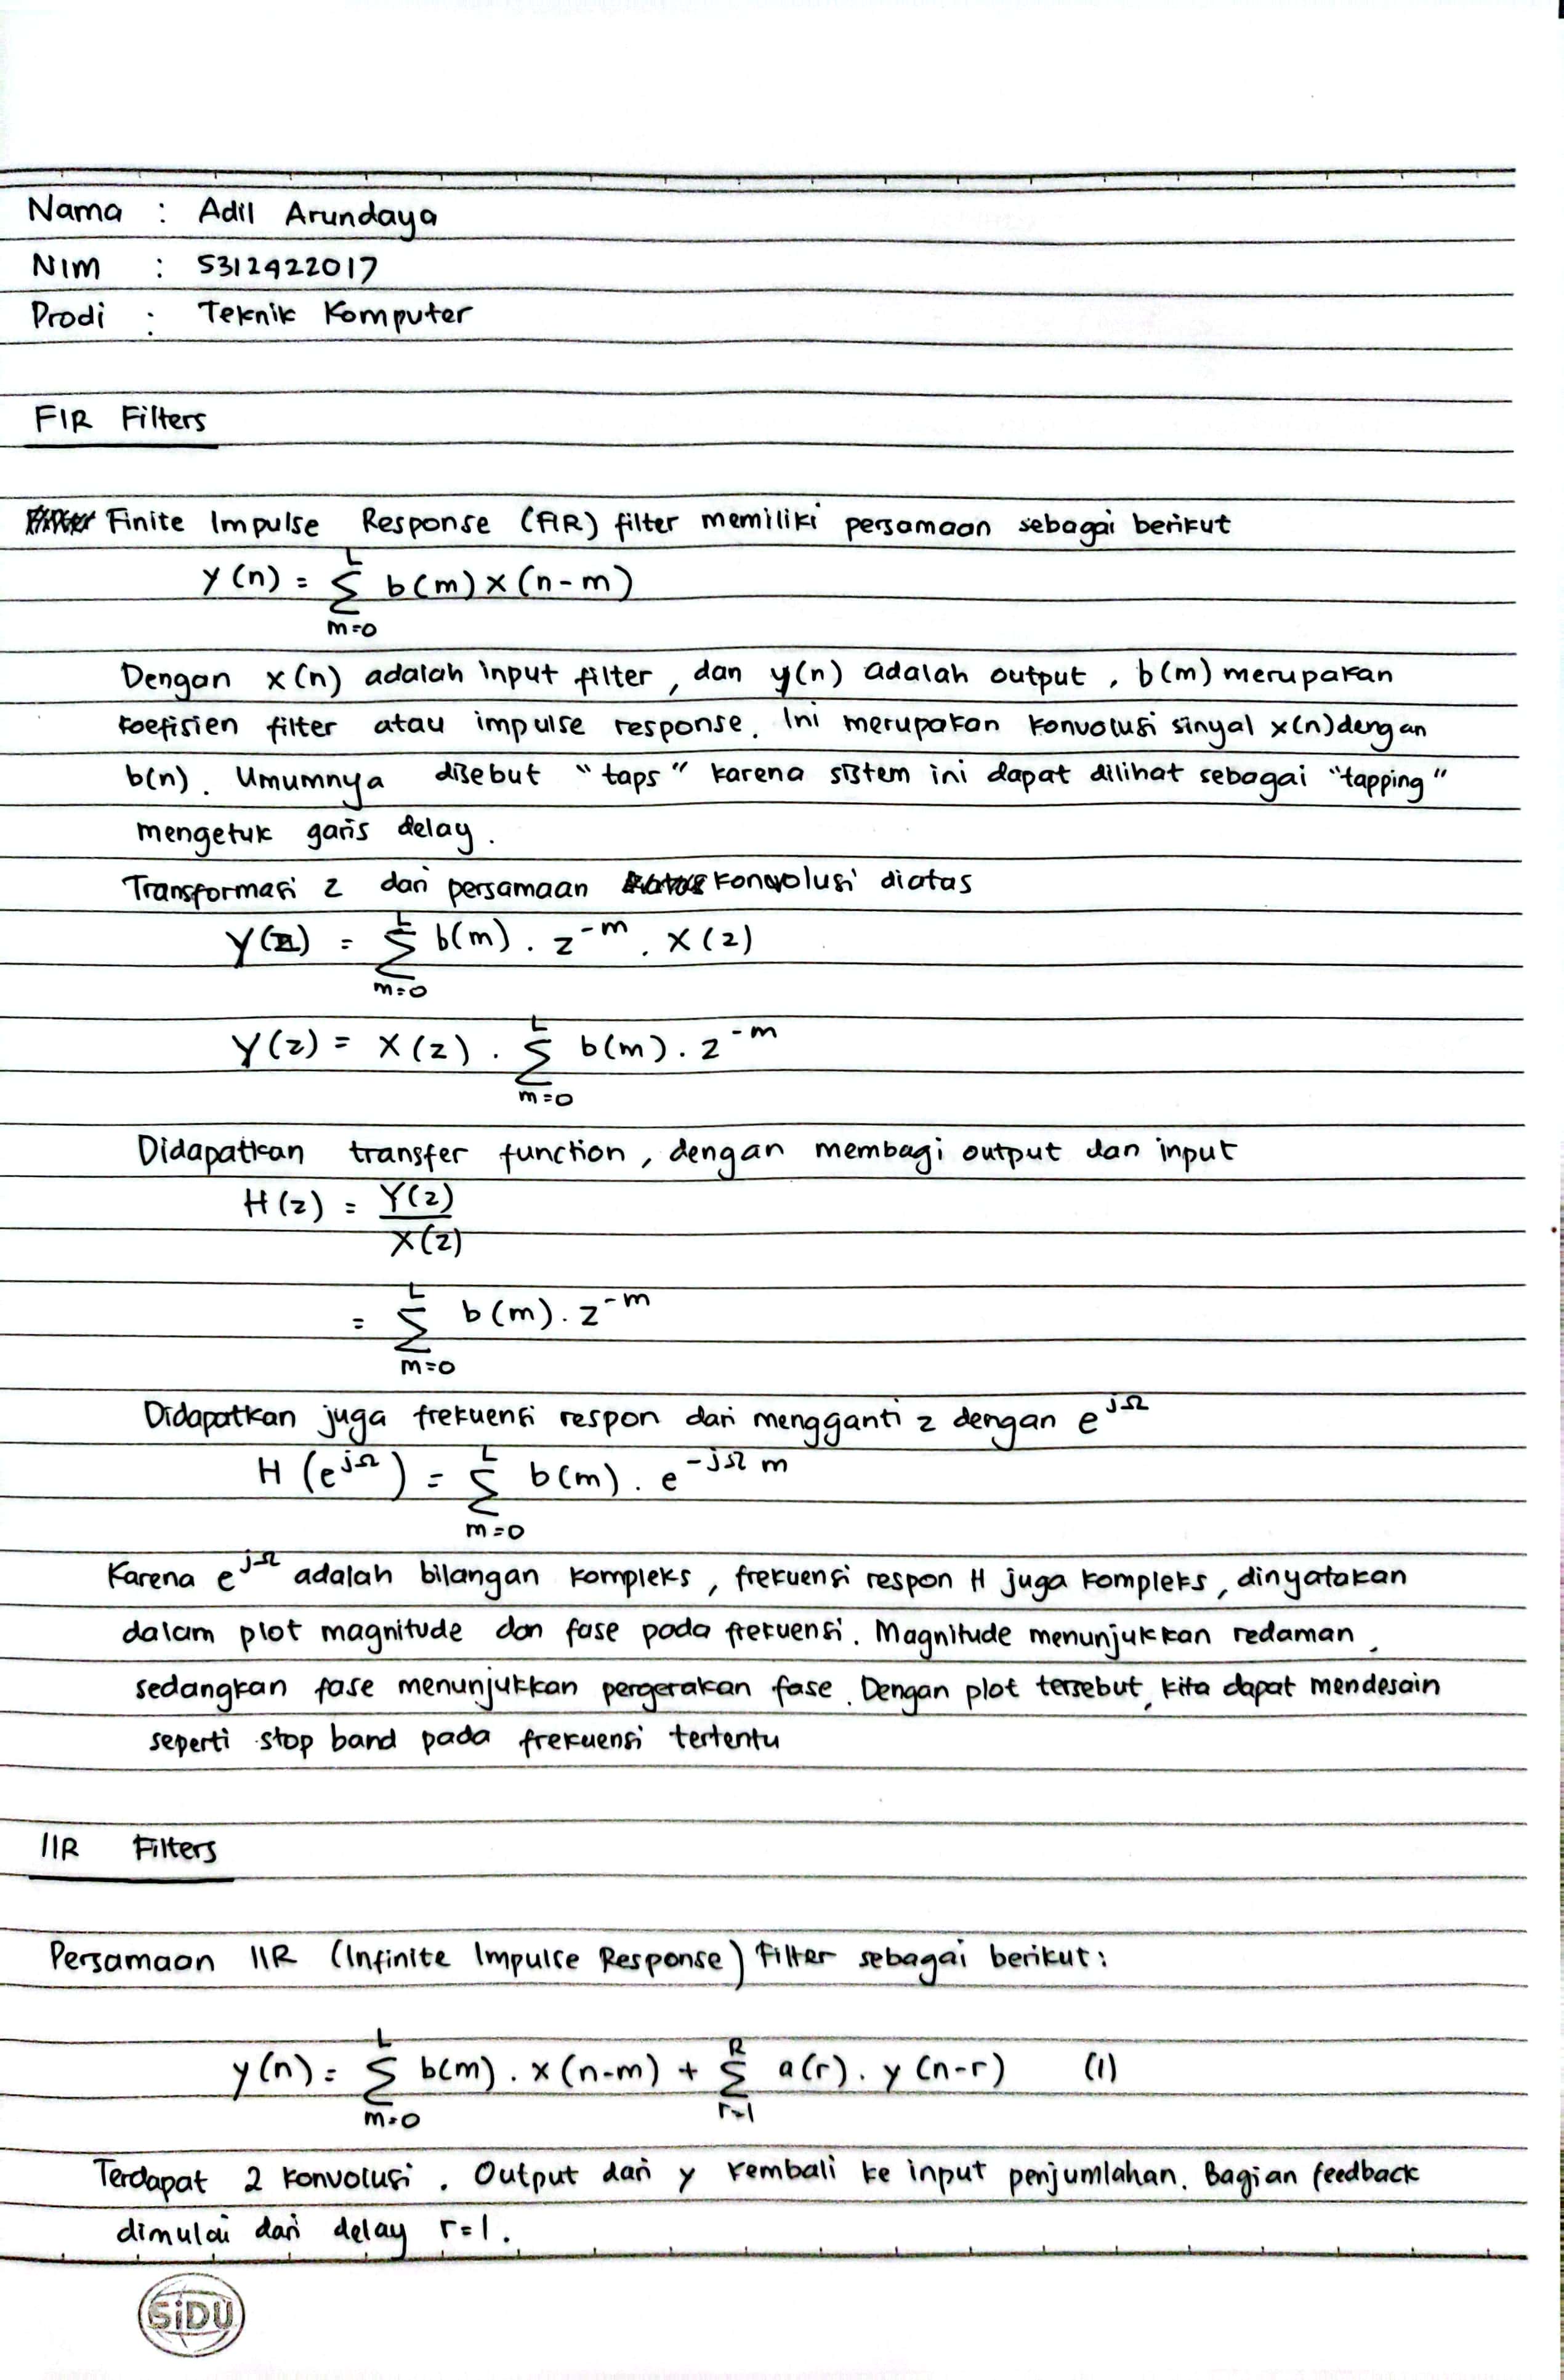 Nama : Adil Arundaya
Nim : 5312422017
Prodi : Teknik Komputer
FIR Filters
Finite Impulse Response (FIR) filter memiliki persamaan sebagai berikut
y(n) = Σ_{m=0}^{L} b(m) x(n-m)
Dengan x(n) adalah input filter, dan y(n) adalah output, b(m) merupakan
koefisien filter atau impulse response. Ini merupakan konvolusi sinyal x(n) dengan
b(n). Umumnya disebut "taps" karena sistem ini dapat dilihat sebagai "tapping"
mengetuk garis delay.
Transformasi z dari persamaan konvolusi diatas
Y(z) = Σ_{m=0}^{L} b(m) . z^{-m} . X(z)
Y(z) = X(z) . Σ_{m=0}^{L} b(m) . z^{-m}
Didapatkan transfer function, dengan membagi output dan input
H(z) = Y(z) / X(z)
= Σ_{m=0}^{L} b(m) . z^{-m}
Didapatkan juga frekuensi respon dari mengganti z dengan e^{jΩ}
H(e^{jΩ}) = Σ_{m=0}^{L} b(m) . e^{-jΩm}
Karena e^{jΩ} adalah bilangan kompleks, frekuensi respon H juga kompleks, dinyatakan
dalam plot magnitude dan fase pada frekuensi. Magnitude menunjukkan redaman,
sedangkan fase menunjukkan pergerakan fase. Dengan plot tersebut, kita dapat mendesain
seperti stop band pada frekuensi tertentu
IIR Filters
Persamaan IIR (Infinite Impulse Response) Filter sebagai berikut:
y(n) = Σ_{m=0}^{L} b(m) . x(n-m) + Σ_{r=1}^{R} a(r) . y(n-r) (1)
Terdapat 2 konvolusi. Output dari y kembali ke input penjumlahan. Bagian feedback
dimulai dari delay r=1.
SiDU